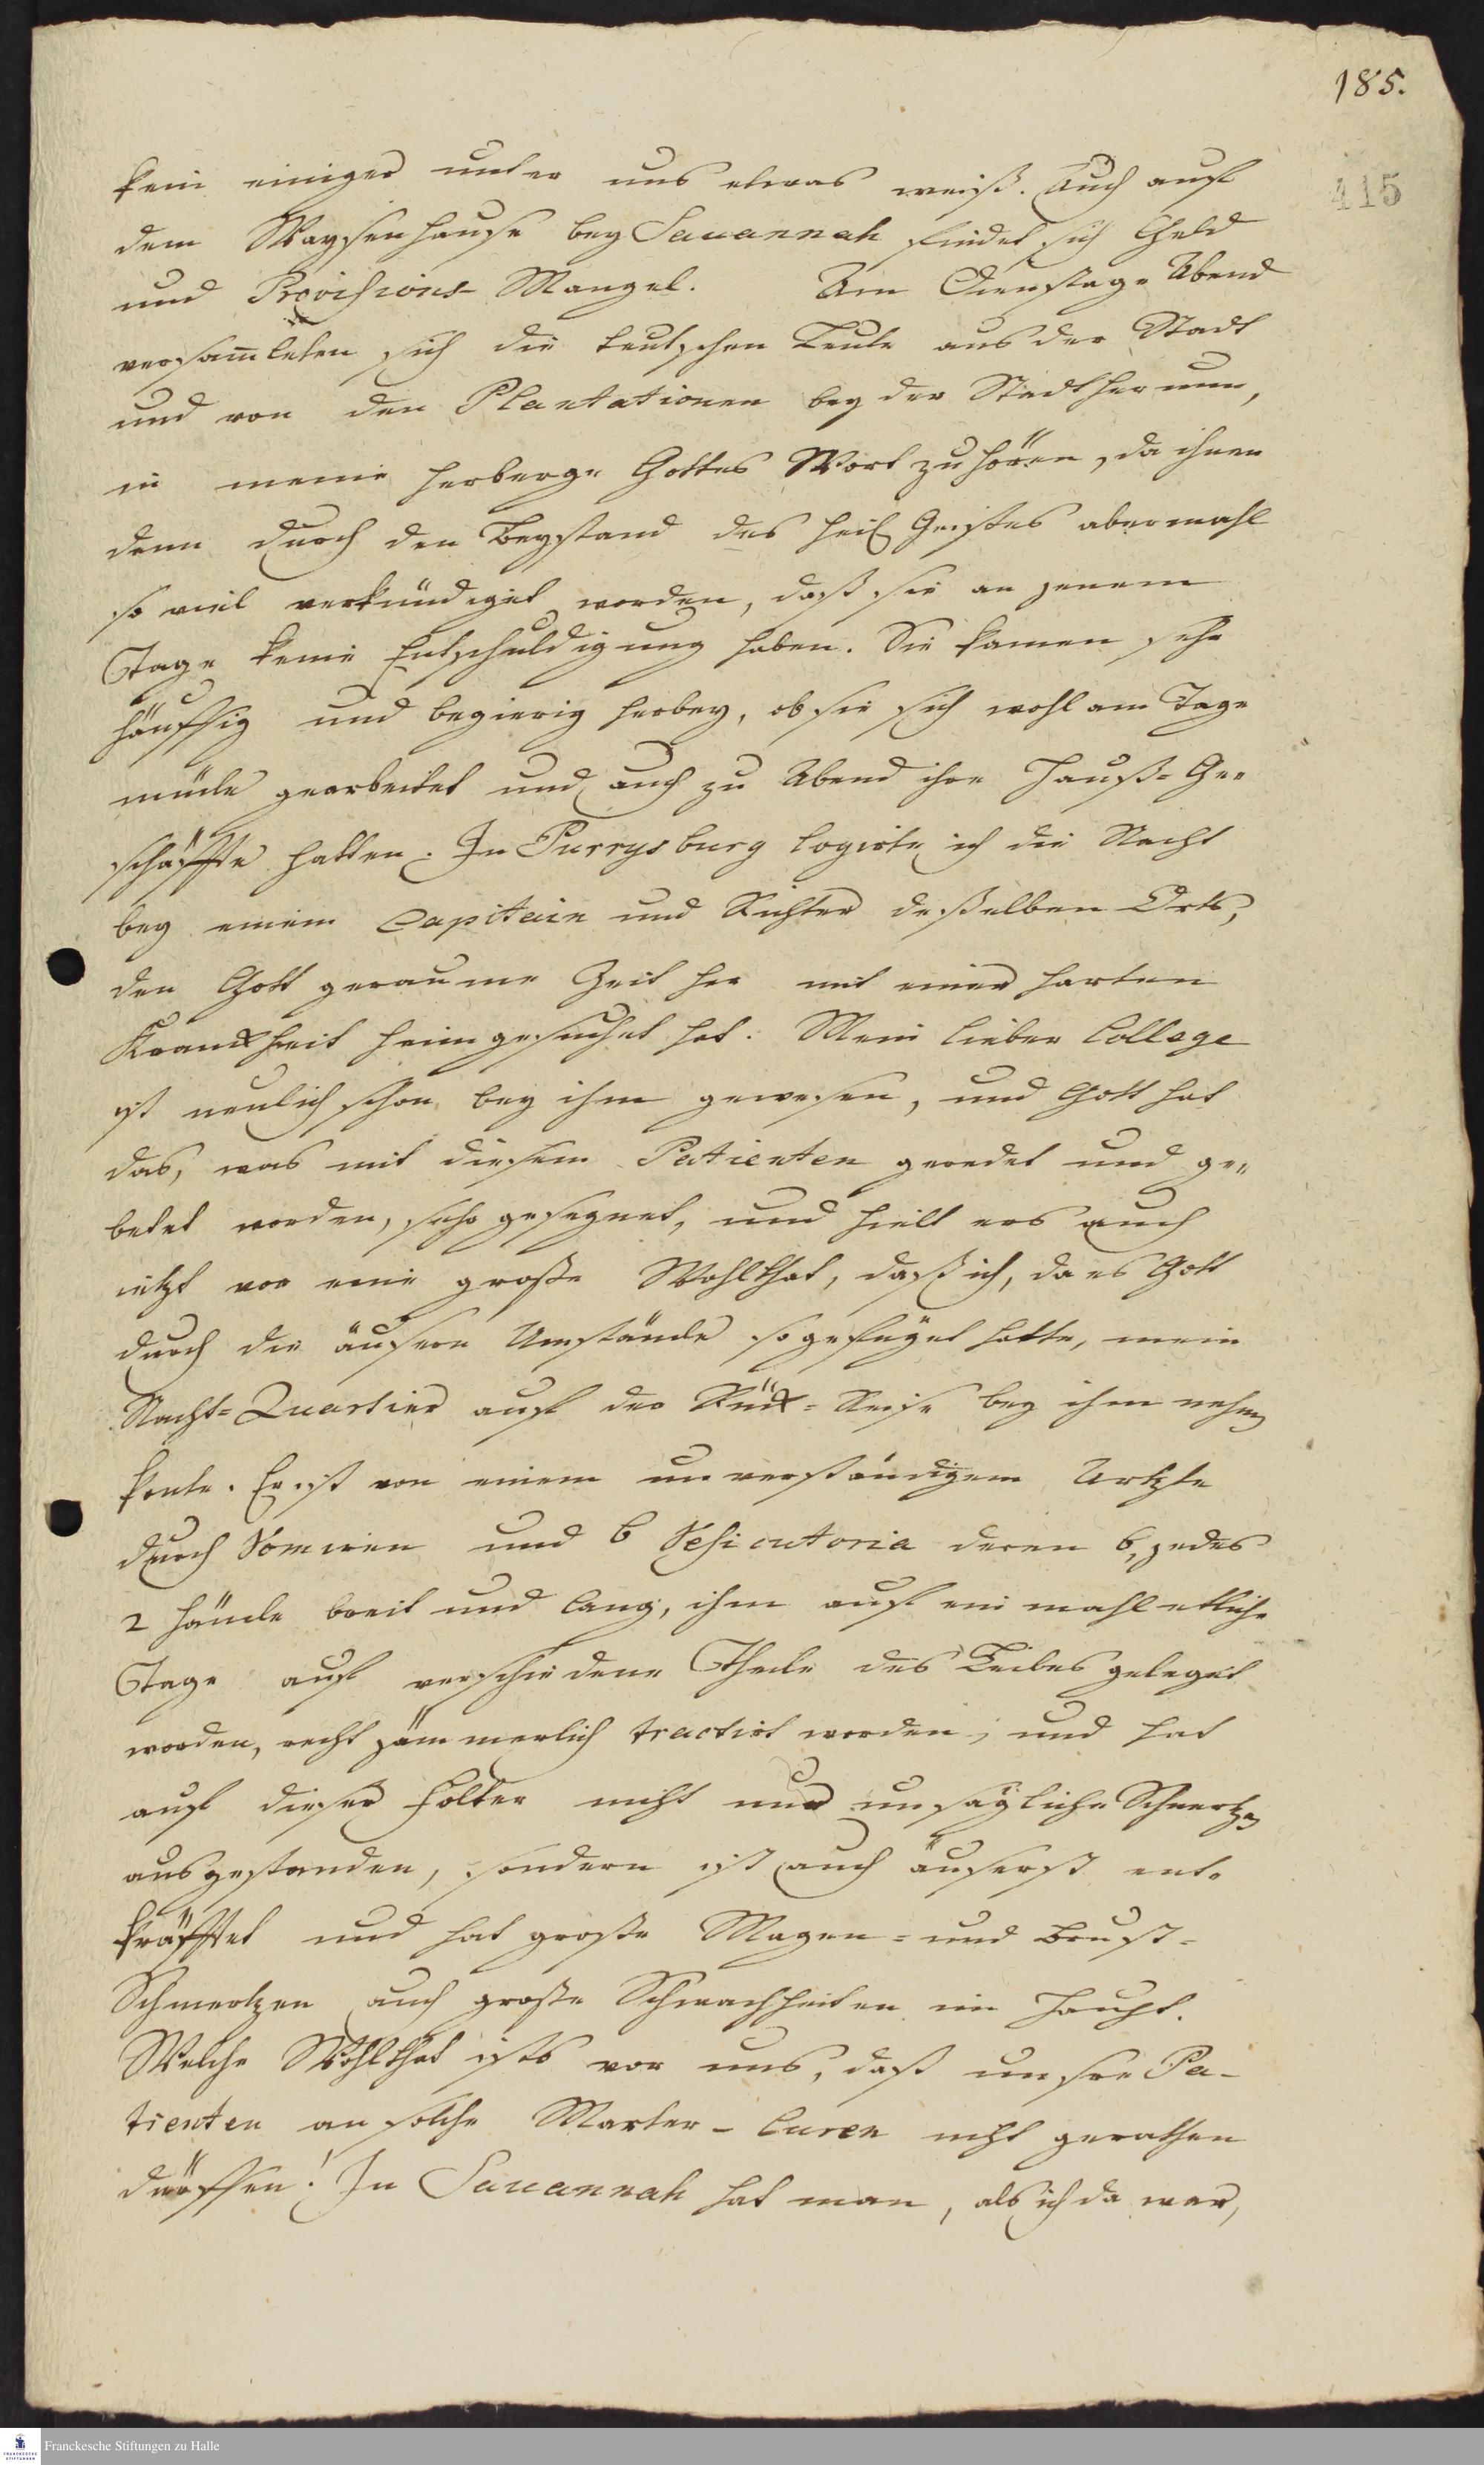 185.
415
kein einiger unter uns etwas weiß. Auch auf
dem Waysenhause bey Savannah findet sich Geld
und Provisions-Mangel. Am Dienstage Abend
versam̄leten sich die teutschen Leute aus der Stadt
und von den Plantationen bey der Stadt herum,
in meine Herberge Gottes Wort zu hören, da ihnen
denn durch den Beystand des Heil Geistes abermahl
so viel verkündiget worden, daß sie an jenem
Tage keine Entschuldigung haben. Sie kamen sehr
häuffig und begierig herbey, ob sie sich wohl am Tage
müde gearbeitet und auch zu Abend ihre Hauß-Ge-
schäffte hatten. In Purrysburg logirte ich die Nacht
bey einem Capitain und Richter deßelben Orts,
den Gott geraume Zeit her mit einer harten
Kranckheit heimgesuchet hat. Mein lieber College
ist neulich schon bey ihm gewesen, und Gott hat
das, was mit diesem Patienten geredet und ge-
betet worden, sehr gesegnet, und hielt ers auch
ietzt vor eine große Wohlthat, daß ich, da es Gott
durch die äusern Umstände so gefüget hatte, mein
Nacht-Quartier auf der Rück-Reise bey ihm nehmen
konte. Er ist von einem unverständigem Artzte
durch Vomiren und 6 Vesicatoria deren 6, jedes
2 Hände breit und lang, ihm auf einmahl etliche
Tage auf verschiedene Theile des Leibes geleget
worden, recht jämmerlich tractirt worden, und hat
auf dieser Folter nicht nur unsägliche Schmertzen
ausgestanden, sondern ist auch äuserst ent-
kräfftet und hat große Magen- und Brust-
Schmertzen auch große Schwachheiten im Haupt.
Welche Wohlthat ists vor uns, daß unsre Pa-
tienten an solche Marter-Curen nicht gerathen
dürffen! In Savannah hat man, als ich da war,
Franckesche Stiftungen zu Halle
FRANCKESCHE
STIFTUNGEN